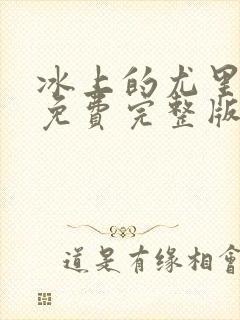 冰上的尤里
免費完整版
道是有缘相會